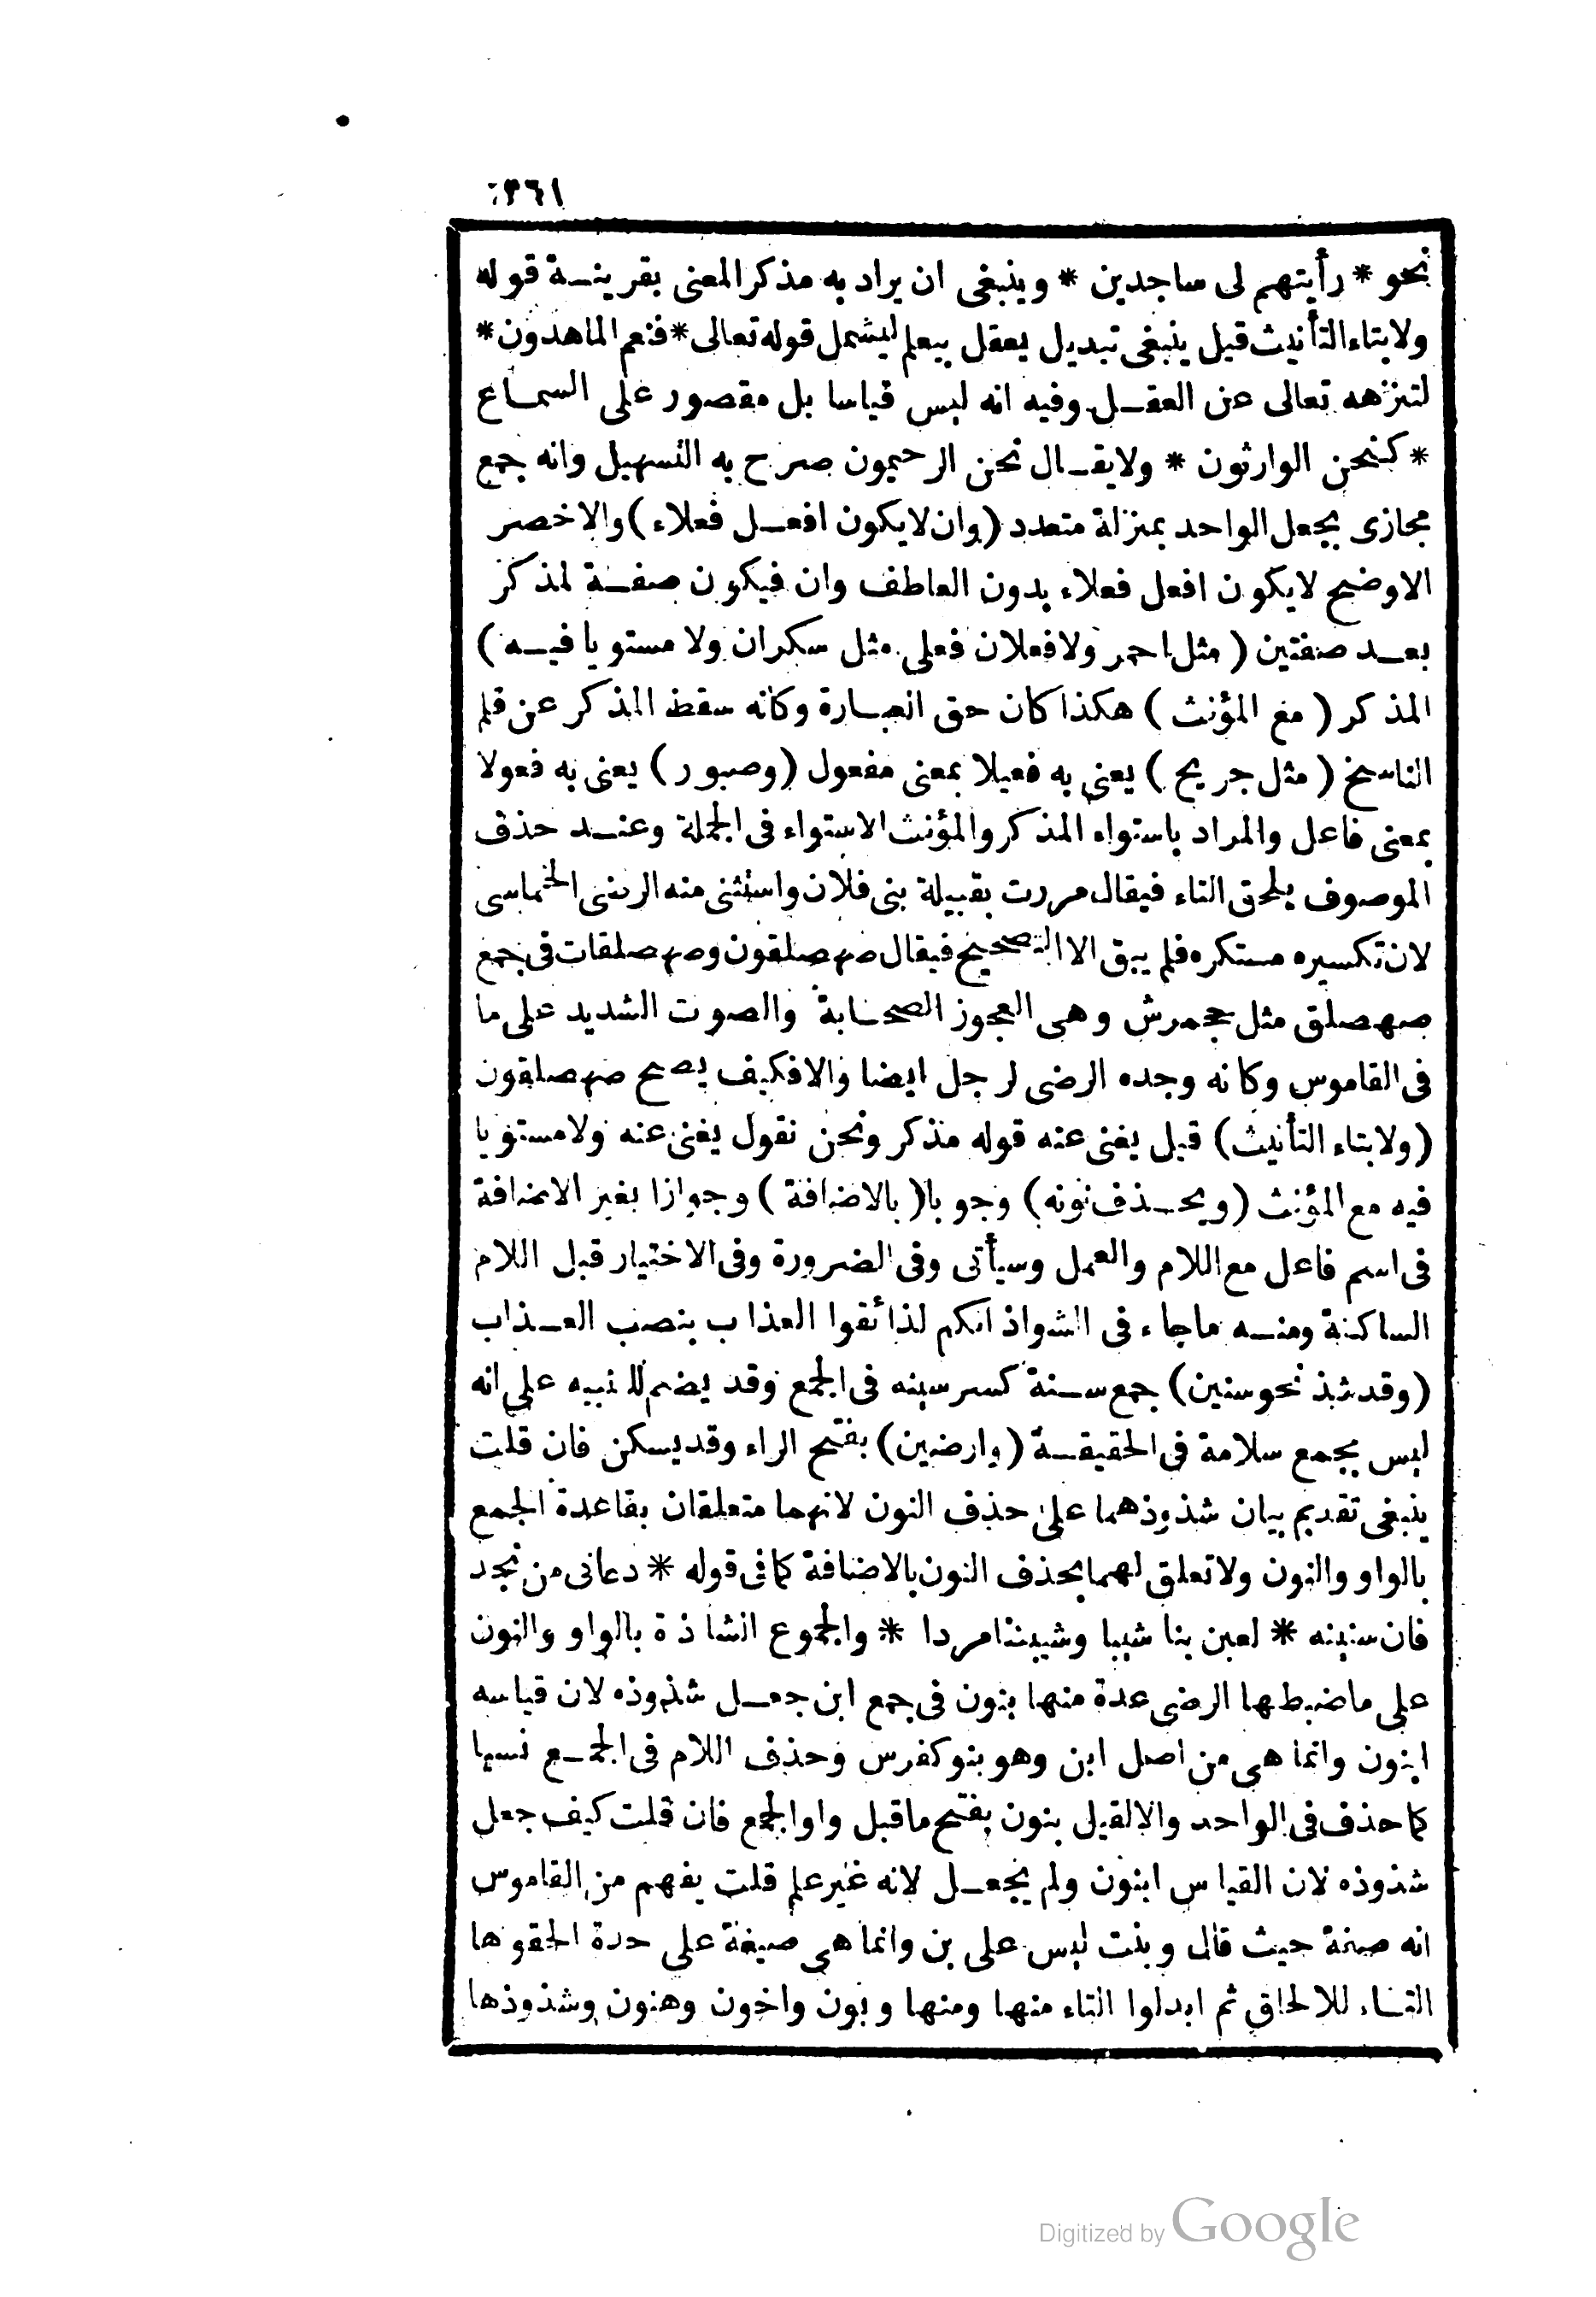 ٣٦١
نحو * رأيتهم لى ساجدين * وينبغى ان يراد به مذكر المعنى بقرينة قوله
ولا بتاء التأنيث قيل ينبغى تبديل يعقل بيعلم ليشمل قوله تعالى * فنعم الماهدون *
لتنزهه تعالى عن العقل وفيه انه ليس قياسا بل مقصور على السماع
* كنحن الوارثون * ولا يقال نحن الرحيمون صرح به التسهيل وانه جمع
مجازى بجعل الواحد بمنزلة متعدد (وان لا يكون افعل فعلاء) والاخصر
الاوضح لا يكون افعل فعلاء بدون العاطف وان فيكون صفة لمذكر
بعد صفتين (مثل احمر ولا فعلان فعلى مثل سكران ولا مستويا فيه)
المذكر (مع المؤنث) هكذا كان حق العبارة وكانه سقط المذكر عن قلم
الناسخ (مثل جريح) يعنى به فعيلا بمعنى مفعول (وصبور) يعنى به فعولا
بمعنى فاعل والمراد باستواء المذكر والمؤنث الاستواء فى الجملة وعند حذف
الموصوف يلحق التاء فيقال مررت بقبيلة بنى فلان واستثنى منه الرضى الخماسى
لان تكسيره مستكره فلم يبق الا التصحيح فيقال صهصلقون وصهصلقات فى جمع
صهصلق مثل جحمرش وهى العجوز الصخابة والصوت الشديد على ما
فى القاموس وكانه وجده الرضى لرجل ايضا والا فكيف يصح صهصلقون
(ولا بتاء التأنيث) قيل يغنى عنه قوله مذكر ونحن نقول يغنى عنه ولا مستويا
فيه مع المؤنث (ويحذف نونه) وجوبا (بالاضافة) وجوازا بغير الاضافة
فى اسم فاعل مع اللام والعمل وسيأتى وفى الضرورة وفى الاختيار قبل اللام
الساكنة ومنه ماجاء فى الشواذ انكم لذائقوا العذاب بنصب العذاب
(وقد شذ نحو سنين) جمع سنة كسر سينه فى الجمع وقد يضم للتنبيه على انه
ليس بجمع سلامة فى الحقيقة (وارضين) بفتح الراء وقد يسكن فان قلت
ينبغى تقديم بيان شذوذهما على حذف النون لانهما متعلقان بقاعدة الجمع
بالواو والنون ولا تعلق لهما بحذف النون بالاضافة كما فى قوله * دعانى من نجد
فان سنينه * لعبن بنا شيبا وشيبننا مردا * والجموع الشاذة بالواو والنون
على ما ضبطها الرضى عدة منها بنون فى جمع ابن جعل شذوذه لان قياسه
ابنون وانما هى من اصل ابن وهو بنو كفرس وحذف اللام فى الجمع نسيا
كما حذف فى الواحد والا لقيل بنون بفتح ما قبل واو الجمع فان قلت كيف جعل
شذوذه لان القياس ابنون ولم يجعل لانه غير علم قلت يفهم من القاموس
انه صفة حيث قال وبنت ليس على بن وانما هى صيغة على حدة الحقوها
التاء للالحاق ثم ابدلوا التاء منها ومنها وبون واخون وهنون وشذوذها
Digitized by Google